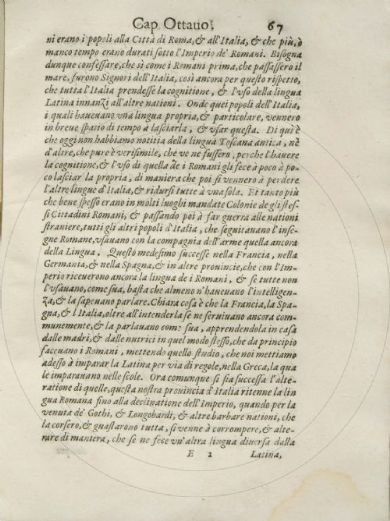 Cap. Ottauo. 67
ni erano i popoli alla Città di Roma, & all'Italia, & che più, o
manco tempo erano durati sotto l'Imperio de' Romani. Bisogna
dunque confessare, che sì come i Romani prima, che passassero il
mare, furono Signori dell'Italia, così ancor per questo rispetto,
che tutta l'Italia prendesse la cognitione, & l'vso della lingua
Latina innanzi all'altre nationi. Onde quei popoli dell'Italia,
i quali haueuano vna lingua propria, & particolare, vennero
in breue spatio di tempo a lasciarla, & vsar questa. Di quì è
che oggi non habbiamo notitia della lingua Toscana antica, nè
d'altre, che pure è verisimile, che ve ne fussero, perche l'hauere
la cognitione, & l'vso di quella de i Romani gli fece à poco à po-
co lasciar la propria, di maniera che poi si vennero à perdere
l'altre lingue d'Italia, & ridursi tutte à vna sola. Et tanto più
che bene spesso erano in molti luoghi mandate Colonie de gli stes-
si Cittadini Romani, & passando poi à far guerra alle nationi
straniere, tutti gli altri popoli d'Italia, che seguitauano l'inse-
gne Romane, vsauano con la compagnia dell'arme quella ancora
della Lingua. Questo medesimo successe nella Francia, nella
Germania, & nella Spagna, & in altre prouincie, che con l'Im-
perio riceuerono ancora la lingua de i Romani, & se tutte non
l'vsauano, come sua, basta che almeno n'haueuano l'intelligen-
za, & la sapeuano parlare. Chiara cosa è che la Francia, la Spa-
gna, & l'Italia, oltre all'intenderla se ne seruiuano ancora com-
munemente, & la parlauano come sua, apprendendola in casa
dalle madri, & dalle nutrici in quel modo stesso, che da principio
faceuano i Romani, mettendo quello studio, che noi mettiamo
adesso à imparar la Latina per via di regole, nella Greca, la qua
le imparauano nelle scole. Ora comunque si sia successa l'alte-
ratione di quelle, questa nostra prouincia d'Italia ritenne la lin
gua Romana fino alla declinatione dell'Imperio, quando per la
venuta de' Gothi, & Longobardi, & altre barbare nationi, che
la corsero, & guastarono tutta, si venne à corrompere, & alte-
rare di maniera, che se ne fece vn'altra lingua diuersa dalla
E 2 Latina,